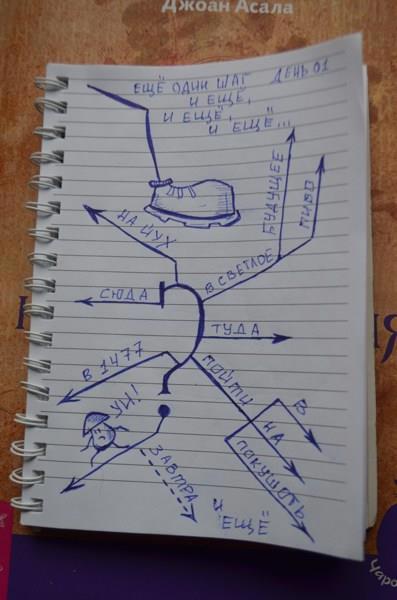 Джоан Асала
ЕЩЁ ОДИН ШАГ ДЕНЬ 01
И ЕЩЁ,
И ЕЩЁ,
И ЕЩЁ...
БУДУЩЕЕ
ПИВО
НА ЙУХ
В СВЕТЛОЕ
СЮДА
ТУДА
В 1477
ПОЙТИ
УЙ!
В
НА
ПОКУШАТЬ
ЗАВТРА
И
ЕЩЁ